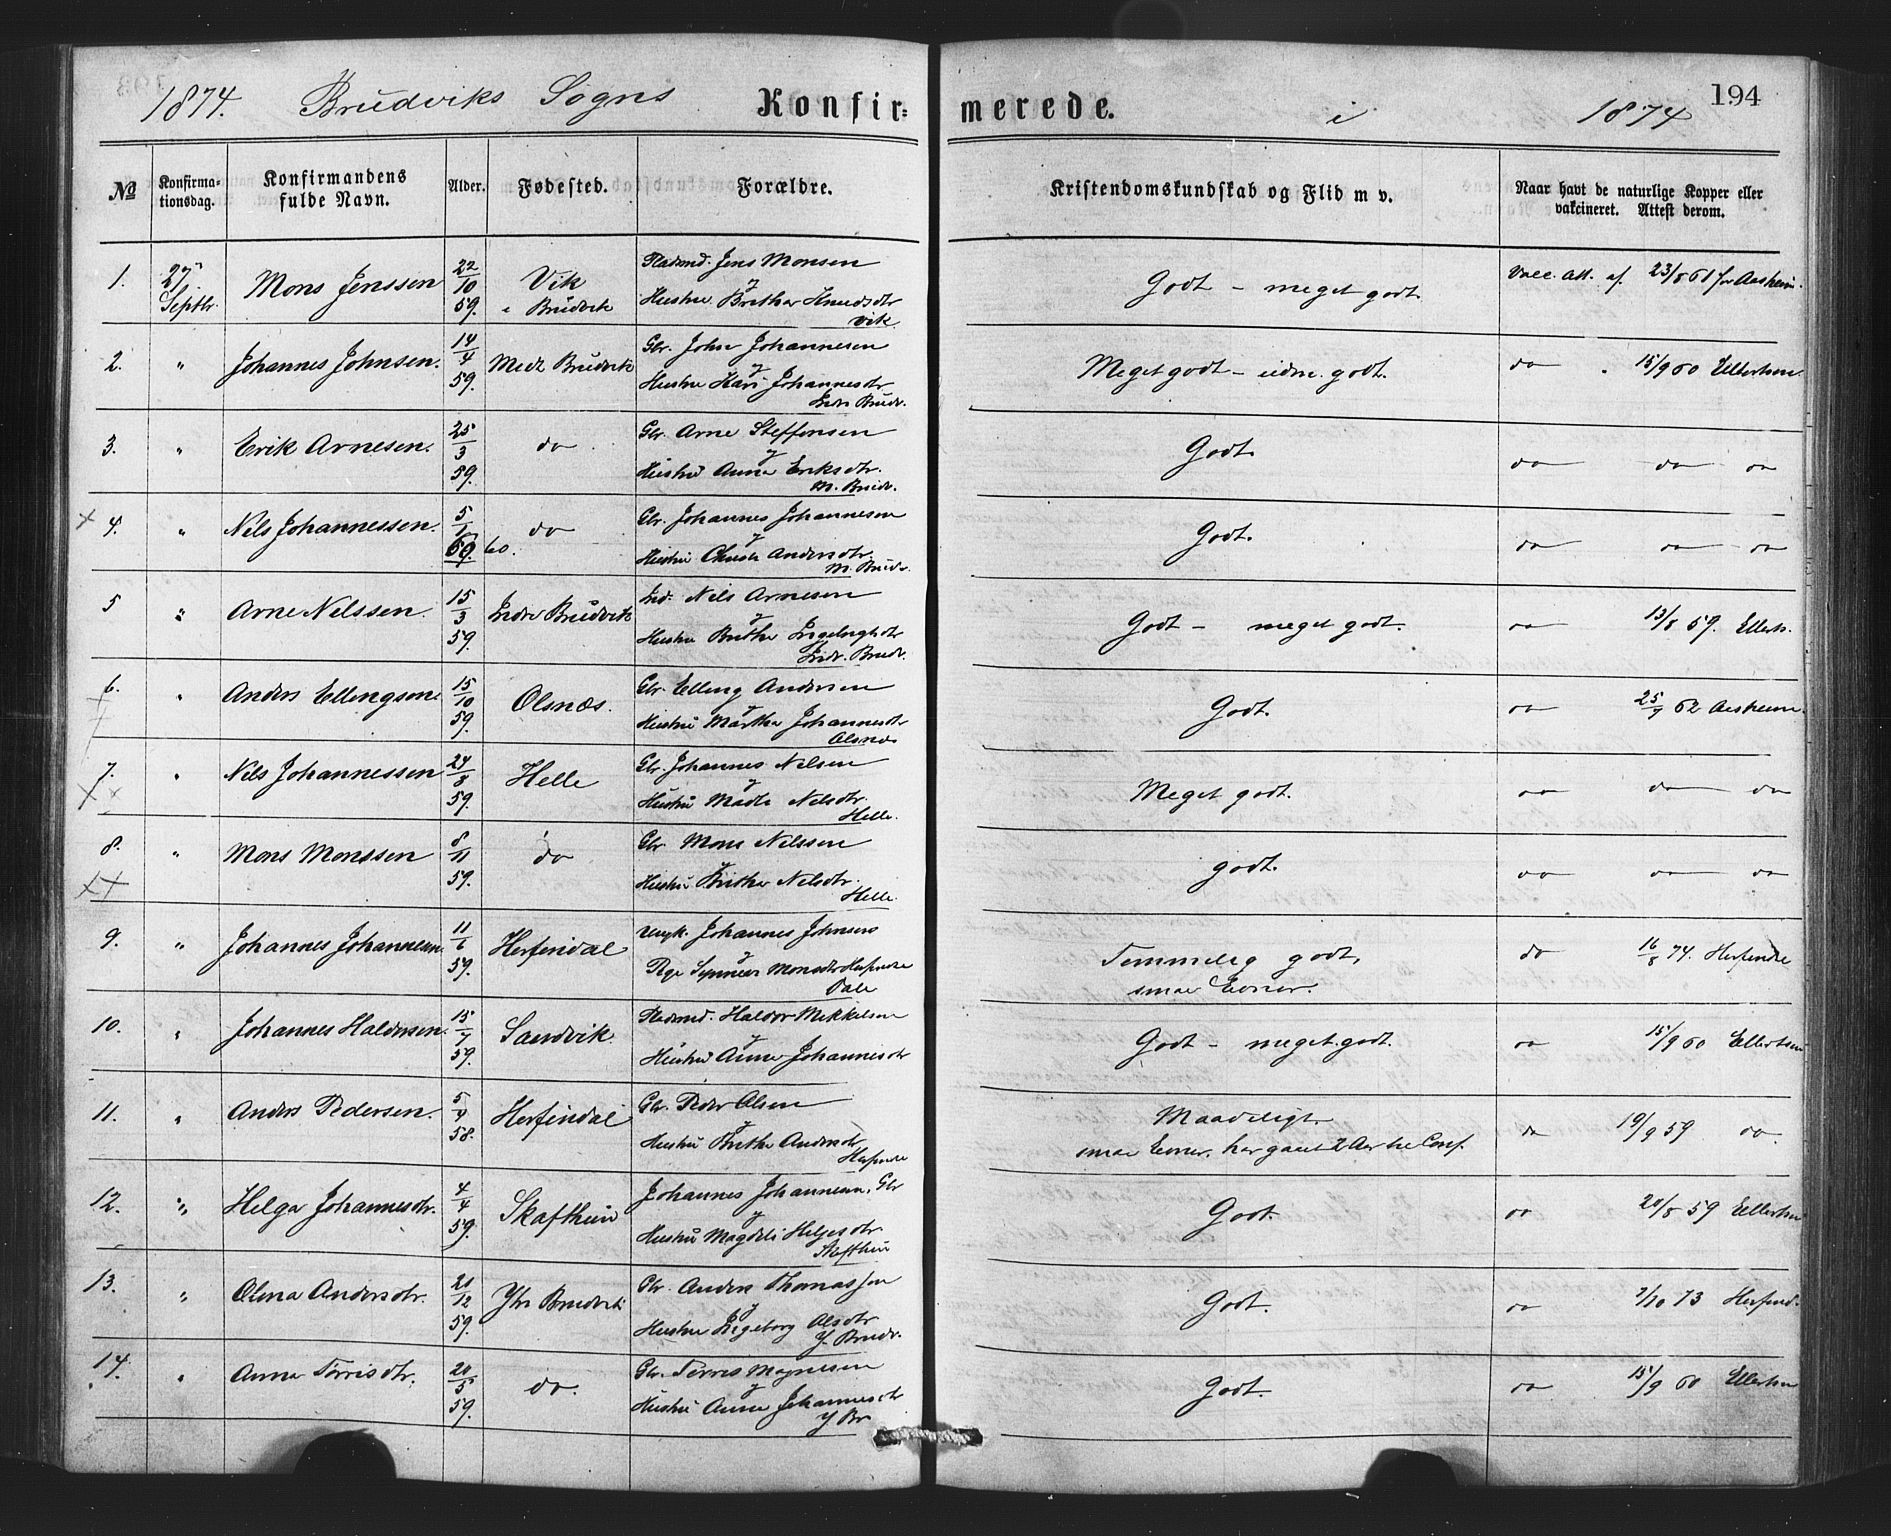 1874. Brudviks Sogns Konfir= merede. i 1874 194
№ Konfirma- tionsdag. Konfirmandens fulde Navn. Alder. Fødested. Forældre. Kristendomskundskab og Flid m v. Naar havt de naturlige Kopper eller vakcineret. Attest derom.
1. 27. Septbr. Mons Jenssen 22/10 59. Vik i Brudvik Jens Monsen
og
Hustru Brithe Knudsdtr Vik Godt – meget godt. Vacc. Att. af 23/8 61 for Aasheim.
2. " Johannes Johnsen. 14/4 59. Medt Brudvik Gbr. John Johannesen
og
Hustru Kari Johannesdtr Indr Brudv. Meget godt – udm. godt. do 15/9 60 Ellertsen.
3. " Erik Arnesen. 25/3 59. do Gbr. Arne Steffensen
og
Hustru Anna Eriksdtr. M. Brudv. Godt. do do do
x 4. " Nils Johannessen. 5/1 59. 60. do Gbr. Johannes Johannesen
og
Hustru Andersdtr. M. Brudv. Godt. do do do
5 " Arne Nilssen. 15/3 59. Indre Brudvik Nils Arnesen
og
Hustru Brithe Ingebrigtsdtr Indr. Brudv. Godt – meget godt. do 13/8 59. Ellerts.
6. " Anders Ellingsen 15/10 59. Olsnæs. Gbr. Elling Andersen
og
Hustru Martha Johannesdtr Olsnæs Godt. do 25/9 62 Aasheim.
7. " Nils Johannessen 24/8 59. Helle Gbr. Johannes Nilsen
og
Hustru Madla Nilsdtr. Helle. Meget godt. do do do
8. " Mons Monssen 8/11 59. do Gbr. Mons Nilssen
og
Hustru Brithe Nilsdtr. Helle. godt. do do do
9. " Johannes Johannesen. 11/6 59. Herfindal Ungk. Johannes Johnsens
og
Pige Synneve Monsdtr Herfindal Dale Temmelig godt,
smaa Evner. do 16/8 74. Herfindal
10. " Johannes Haldorsen. 15/7 59. Sandvik. Haldor Mikkelsen
og
Hustru Anna Johannesdtr Godt – meget godt. do 15/9 60 Ellertsen
11. " Anders Pedersen. 5/4 58. Herfindal Gbr. Peder Olsen
og
Hustru Brithe Andersdtr Herfindal Maadeligt.
smaa Evner, har gaaet 2 Aar til Conf. do 19/9 59 do.
12. " Helga Johannesdtr. 4/4 59. Skafthun Johannes Johannesen, Gbr
og
Hustru Magdeli Helgesdtr Skafthun Godt. do 20/8 59 Ellertsen
13. " Olena Andersdtr. 20/12 59. Ytr Brudvik Gbr. Anders Thomassen
og
Hustru Ingeborg Olsdtr Y. Brudv. Godt. do 7/10 73 Herfind.
14. " Anna Torrisdtr. 20/5 59. do. Gbr. Torres Magnesen
og
Hustru Anna Johannesdtr Y. Br Godt. do 15/9 60 Ellertsen